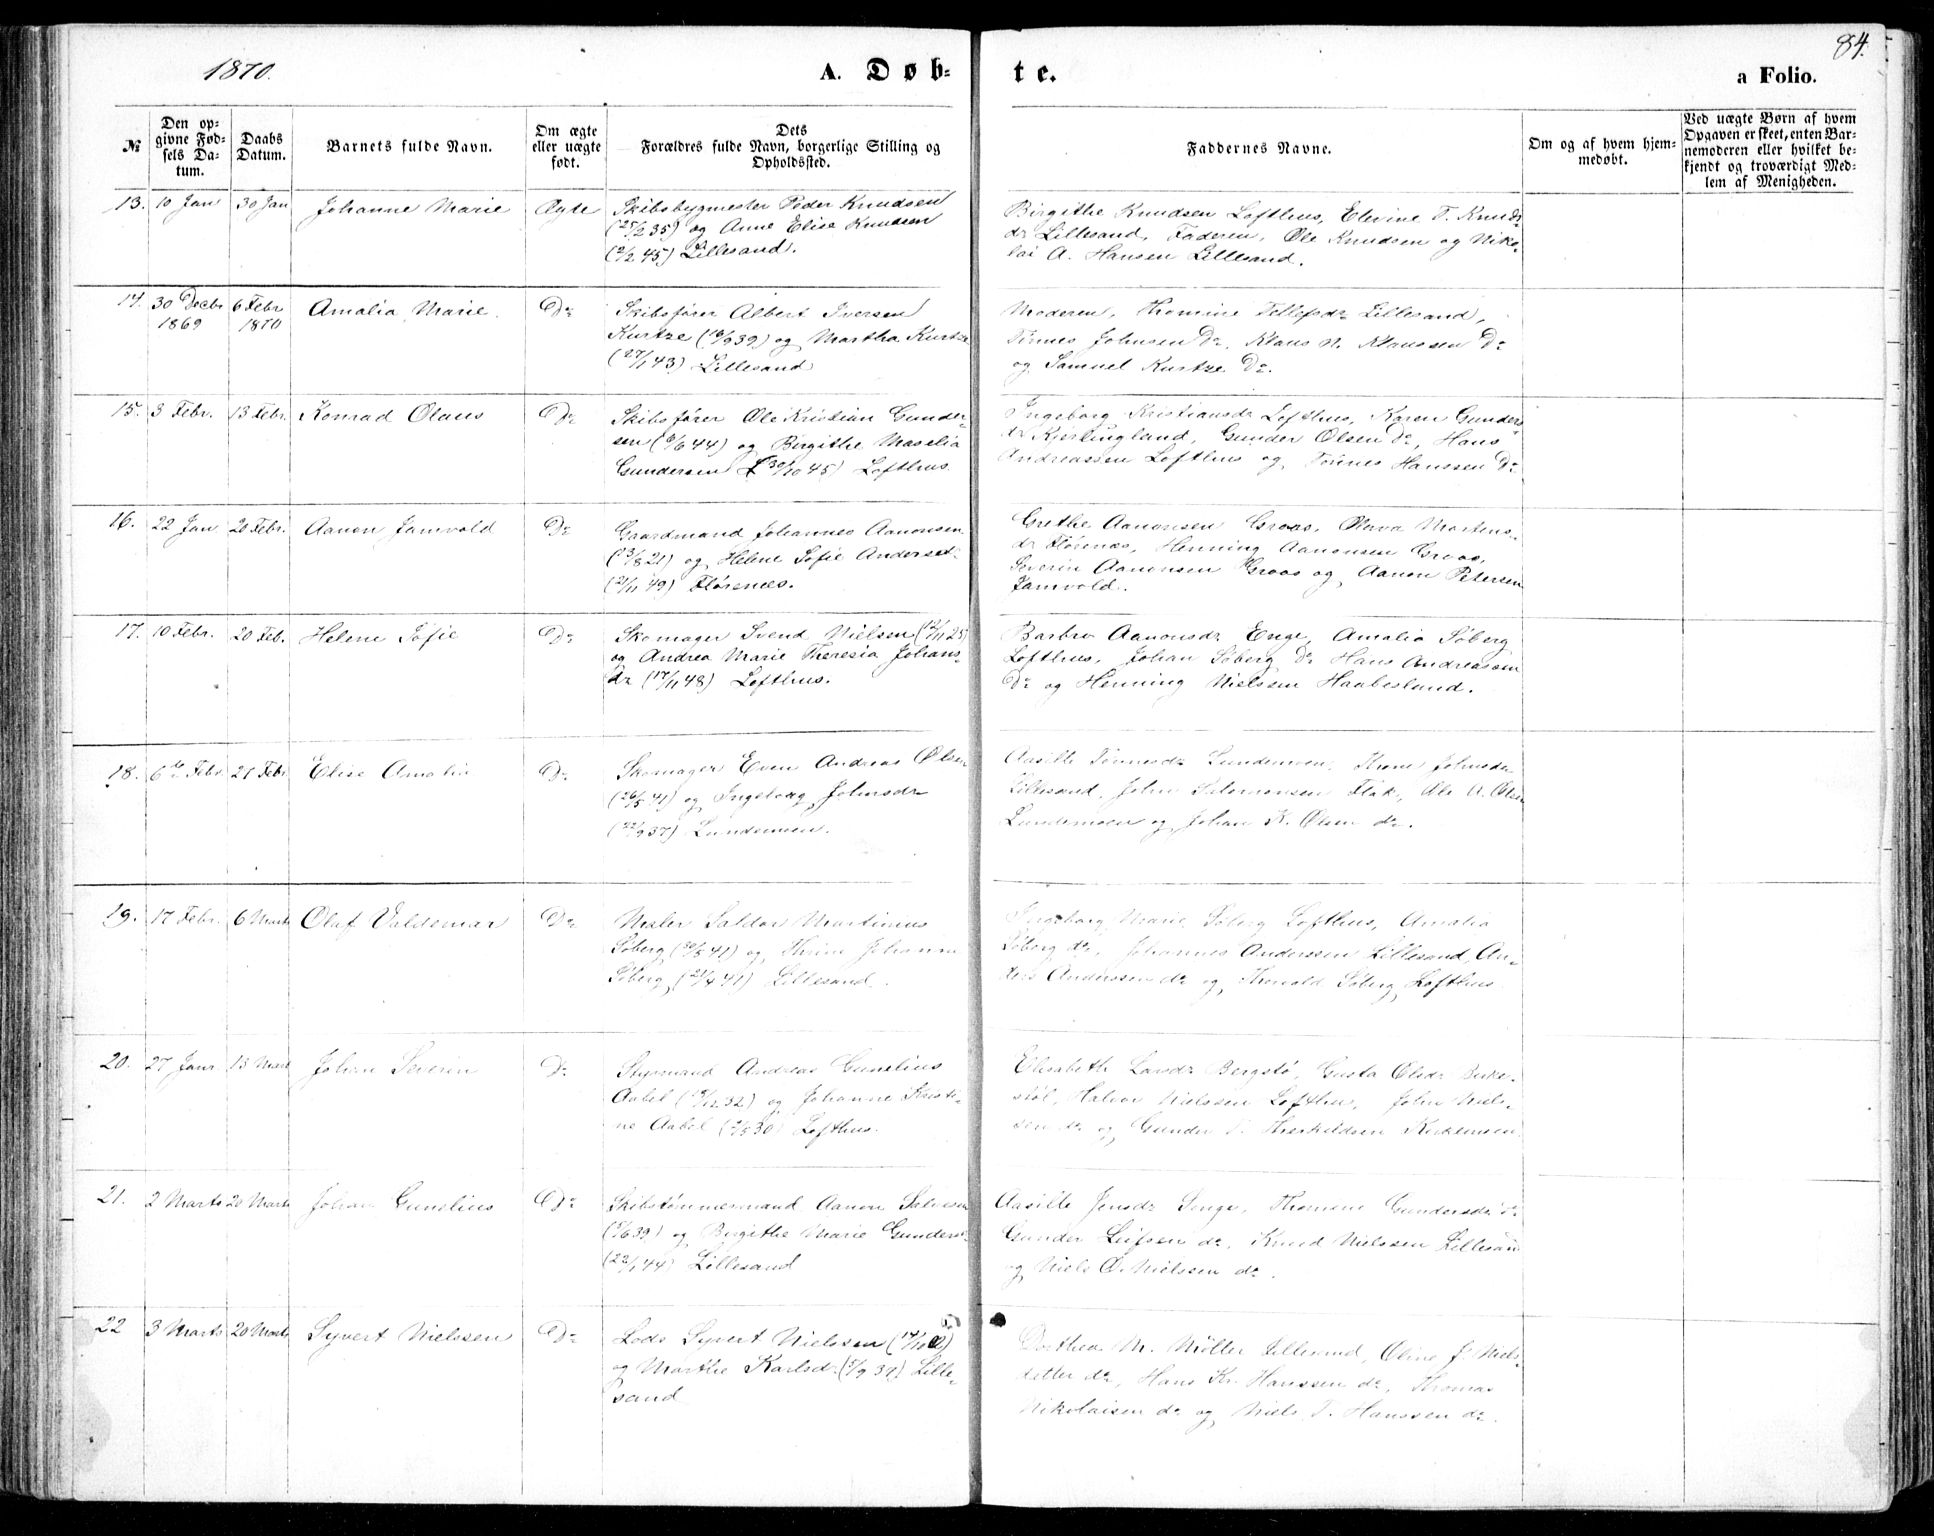 1870.
A. Døb-
te.
a Folio.
84.
№
Den op-
givne Fød-
sels Da-
tum.
Daabs
Datum.
Barnets fulde Navn.
Om ægte
eller uægte
født.
Dets
Forældres fulde Navn, borgerlige Stilling og
Opholdssted.
Faddernes Navne.
Om og af hvem hjem-
medøbt.
Ved uægte Børn af hvem
Opgaven er skeet, enten Bar-
nemoderen eller hvilket be-
kjendt og troværdigt Med-
lem af Menigheden.
13. 10 Jan 30 Jan Johanne Marie Ægte
Skibsbygmester Peder Knudsen
35) og Anne Elise Knudsen
(2/2 45) Lillesand.
Birgithe Knudsen Lofthus, Elevine T. Knuds
dr Lillesand, Faderen, Ole Knudsen og Niko-
lai A. Hansen Lillesand.
14. 30 Decbr 6 Febr Amalia Marie. Do
1869 1870
Skibsfører Albert Iversen
Kurtze (16/9 39) og Martha Kurtze
(27/1 43) Lillesand
Moderen, Thomine Tellefsdr Lillesand,
Tønnes Johnsen Do, Klaus N. Klaussen Do
og Samuel Kurtze Do.
15. 3 Febr. 13 Febr. Konrad Olaus Do
Skibsfører Ole Kristian Gunder-
sen (6/6 44) og Birgithe Maselia
Gundersen (30/10 45) Lofthus
Ingeborg Kristiansdr Lofthus, Karen Gunders
dr Kjerlingland, Gunder Olsen Do, Hans
Andreassen Lofthus og Tønnes Hanssen Do
16. 22 Jan 20 Febr. Aanon Jamvold Do
Gaardmand Johannes Aanonsen
(13/8 21) og Helene Sofie Andersdr
(21/11 49) Flørenæs.
Grethe Aanonsen Groos, Olava Martens-
dr Flørenæs, Henning Aanonsen Groos,
Severin Aanonsen Groos og Aanon Petersen
Jamvold.
17. 10 Febr. 20 Feb. Helene Sofie Do
Skomager Svend Nielsen (12/11 25)
og Andrea Marie Theresia Johans-
dr (17/11 48) Lofthus.
Barbro Aanonsdr Enge, Amalia Søberg
Lofthus, Johan Søberg Do Hans Andreassen
Do og Henning Nielssen Haabesland.
18. 6te Febr. 27 Febr. Elise Amalie Do
Skomager Even Andreas Olsen
(26/5 41) og Ingeborg Johnsdr
(22/9 37) Lundemoen.
Aasille Tønnesdr Lundemoen, Johnsdr
Lillesand, John Salomonsen Flak, Ole A. Olsen
Lundemoen og Johan K. Olsen do.
19. 17 Febr. 6 Marts Olaf Valdemar Do
Maler Saldor Martinius
Søberg (30/5 41) og Thrine Johanne
Søberg (21/4 41) Lillesand.
Ingeborg Marie Søberg Lofthus, Amalia
Søberg do, Johannes Anderssen Lillesand, An-
ders Anderssen do og Thorvald Søberg Lofthus
20. 27 Janr 13 Marts Johan Severin Do
Styrmand Andreas Gunelius
Aabel 32) og Johanne Kristi-
ne Aabel 30) Lofthus.
Elisabeth Larsdr Bergstø, Gusta Olsdr Birke-
støl, Halvor Nielssen Lofthus, John Niels-
sen do og Gunder T. Therkildsen Kirkemoen.
21. 2 Marts 20 Marts Johan Gunelius Do
Skibstømmermand Aanon Salvesen
39) og Birgithe Marie Gundersdr
(22/1 44) Lillesand
Aasille Jensdr Tinge, Thomine Gundersdr do
Gunder Leifsen do, Knud Nielssen Lillesand
og Niels O. Nielssen do.
22 3 Marts 20 Marts Syvert Nielssen Do
Lods Syvert Nielssen
og Marthe Karlsd. 37) Lille-
sand
Dorthea M. Møller Lillesand, Oline J. Niels-
datter do, Hans Kr. Hanssen do, Thomas
Nikolaisen do og Niels T. Hanssen do.